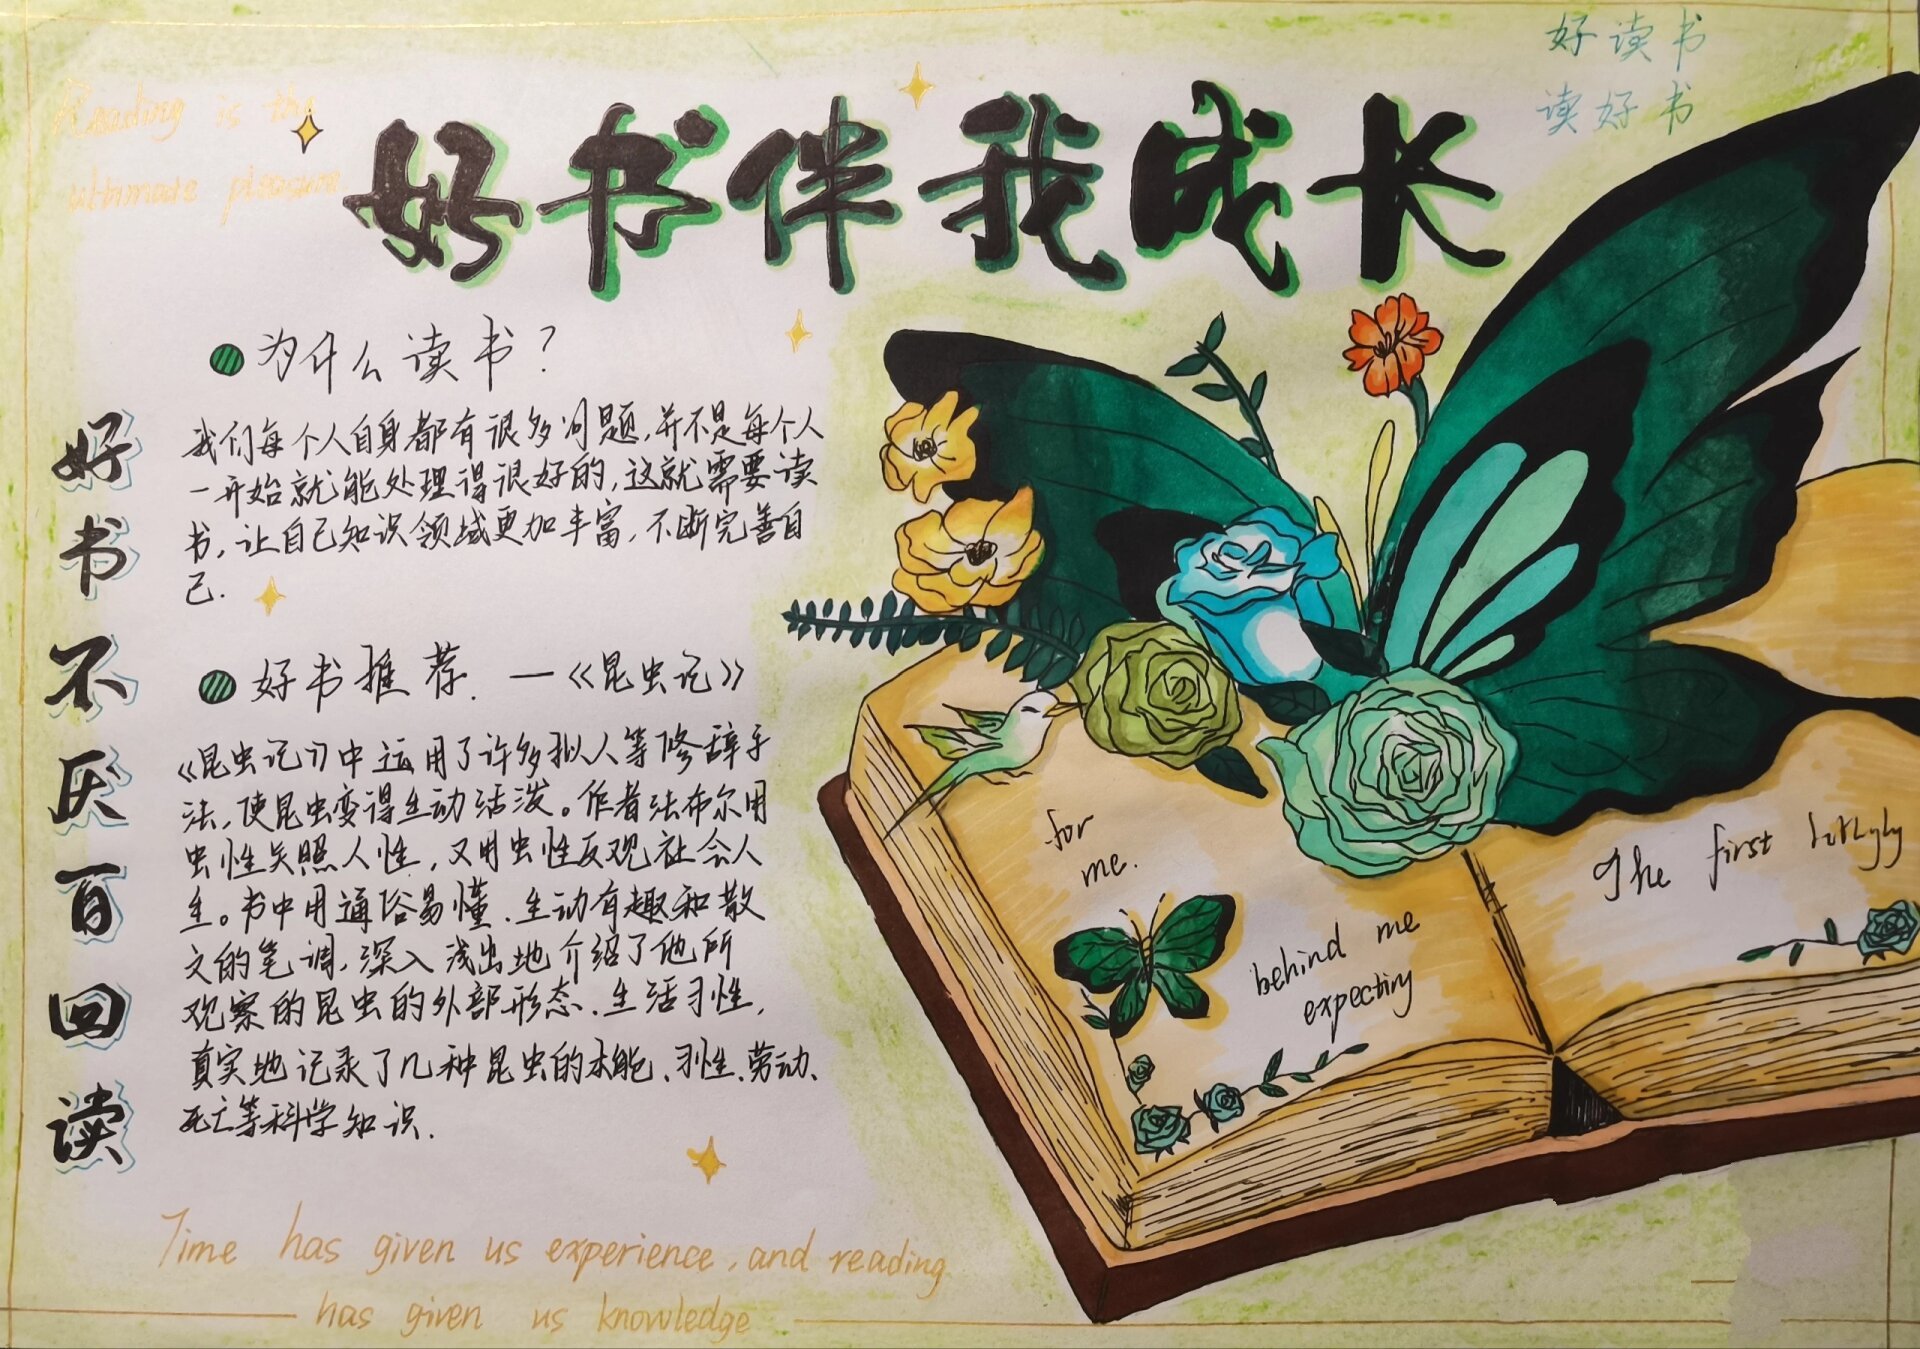 好读书
读好书
Reading is the
ultimate pleasure.
好书伴我成长
好书不厌百回读
为什么读书?
我们每个人自身都有很多问题,并不是每个人
一开始就能处理得很好的,这就需要读
书,让自己知识领域更加丰富,不断完善自
己.
好书推荐.—《昆虫记》
《昆虫记》中运用了许多拟人等修辞手
法,使昆虫变得生动活泼。作者法布尔用
虫性关照人性,又用虫性反观社会人
生。书中用通俗易懂、生动有趣和散
文的笔调,深入浅出地介绍了他所
观察的昆虫的外部形态、生活习性,
真实地记录了几种昆虫的本能、习性、劳动、
死亡等科学知识.
for
me.
behind me
expecting
The first
Time has given us experience, and reading
has given us knowledge